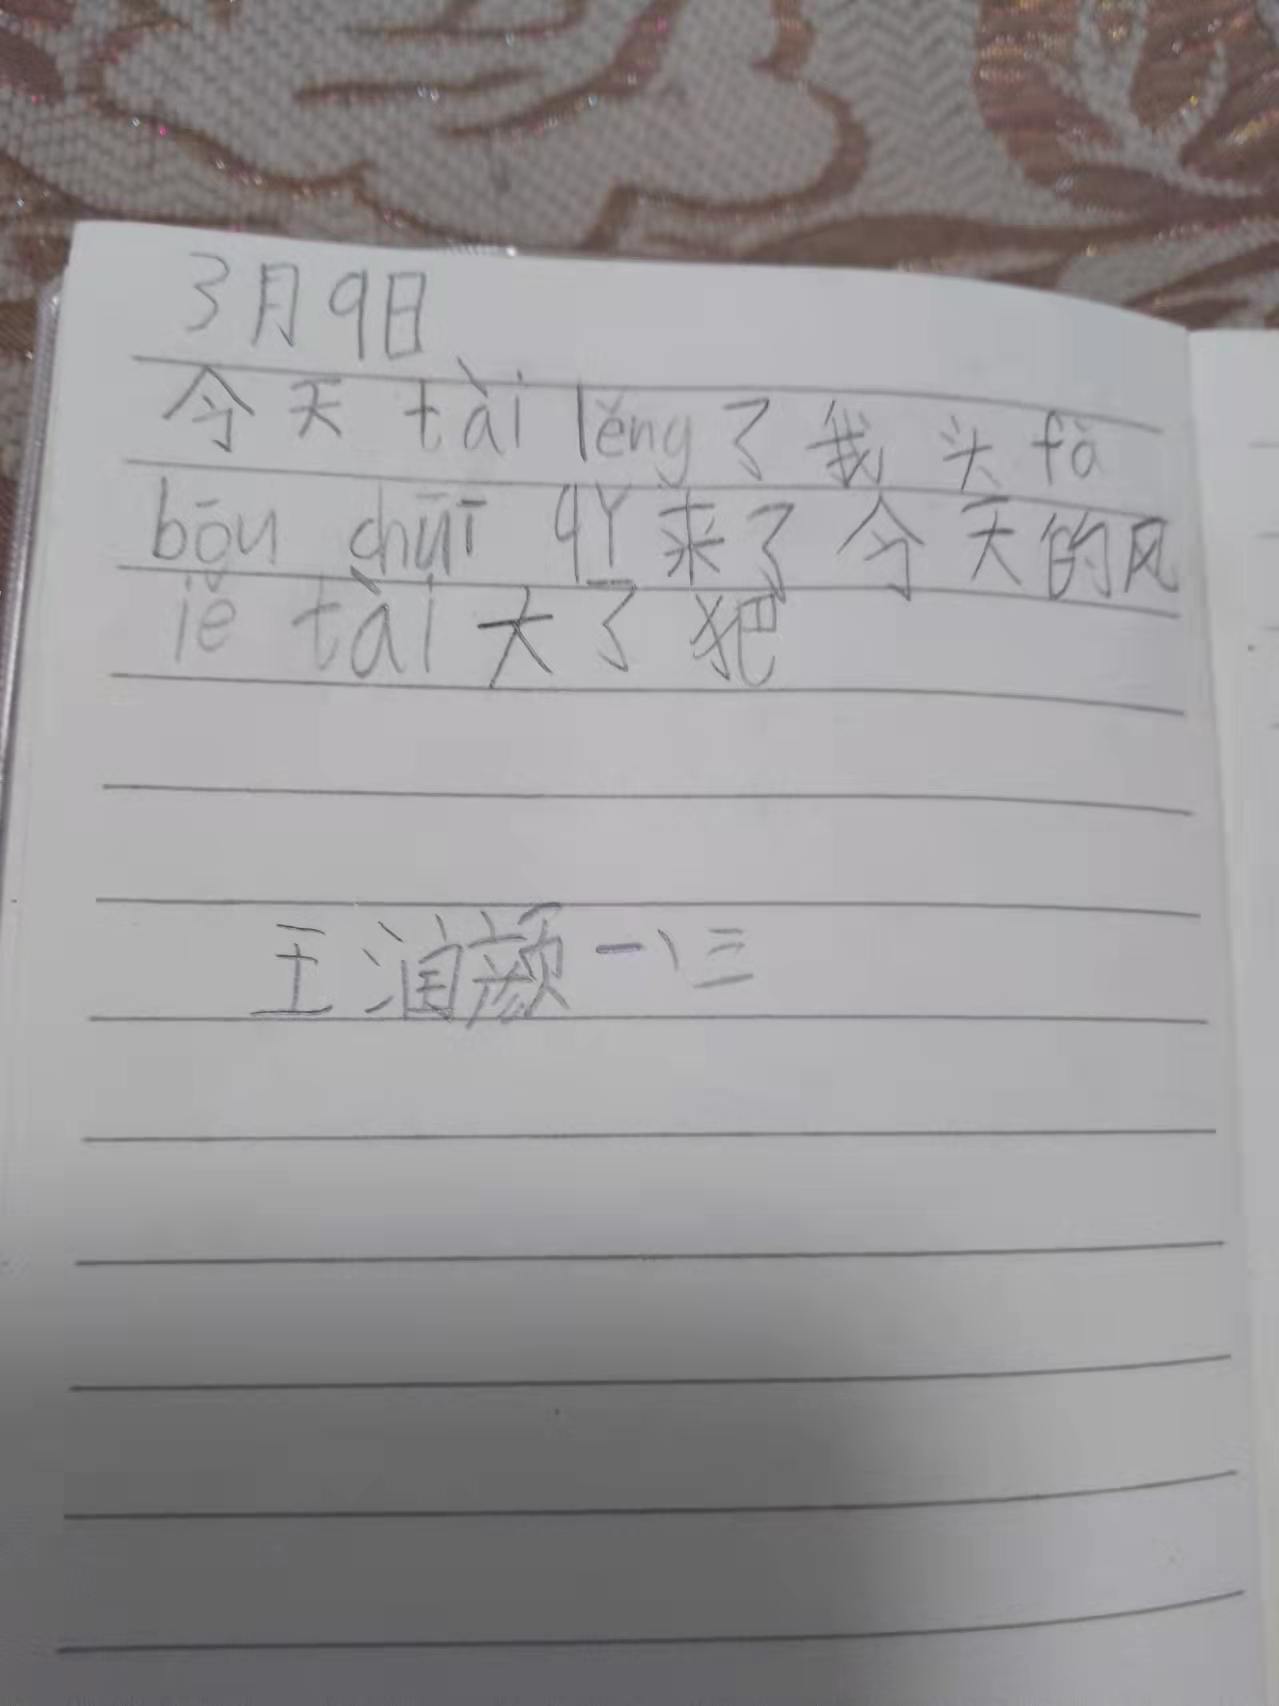 3月9日
今天 tài lěng 了我头 fà
bōu chuī 起来了今天的风
iě tài 大了把
王润颜一、三